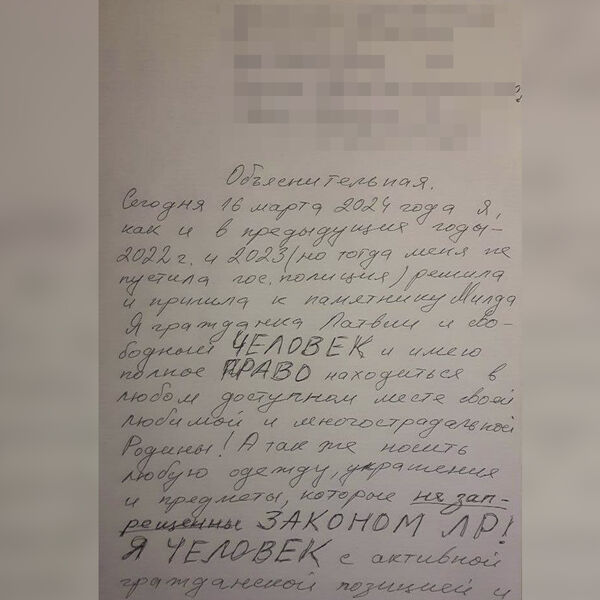 Объяснительная.
Сегодня 16 марта 2024 года Я,
как и в предыдущия годы-
2022 г. и 2023 (но тогда меня не
пустила гос. полиция) решила
и пришла к памятнику Милда
Я гражданка Латвии и сво-
бодный ЧЕЛОВЕК и имею
полное ПРАВО находиться в
любом доступном месте своей
любимой и многострадальной
Родины! А так же носить
любую одежду, украшения
и предметы, которые не зап-
рещенны ЗАКОНОМ ЛР!
Я ЧЕЛОВЕК с активной
гражданской позицией и